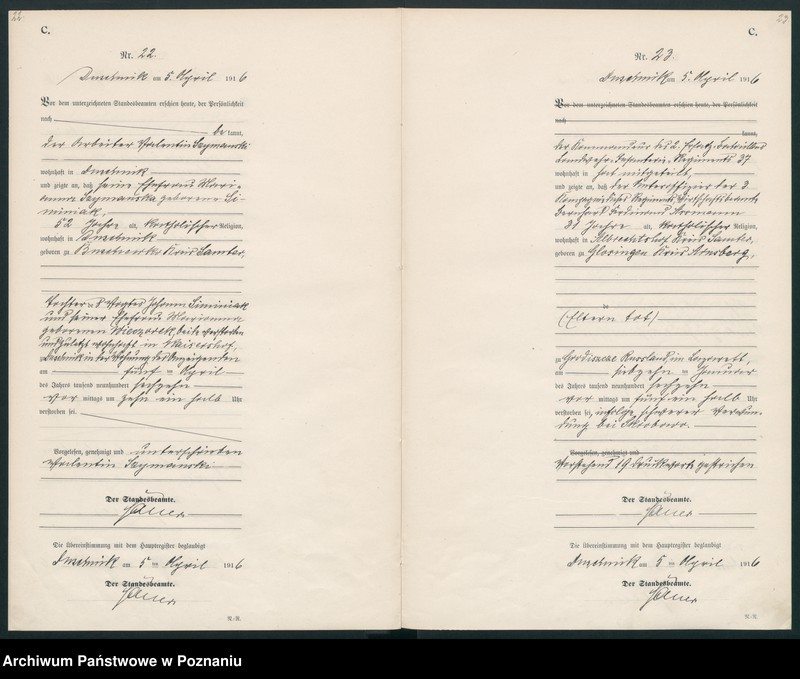 22.
C.
Nr. 22.
Duschnik am 5. April 1916
Vor dem unterzeichneten Standesbeamten erschien heute, der Persönlichkeit
nach
be kannt,
der Arbeiter Valentin Szymanski
wohnhaft in Duschnik
und zeigte an, daß seine Ehefrau Mari-
anna Szymanska geborene Si-
miniak,
52 Jahre alt, katholischer Religion,
wohnhaft in Duschnik
geboren zu Kreis Samter,
Tochter des Vogtes Johann Siminiak
und seiner Ehefrau Marianna
geborenen Wieczorek, beide verstorben
und zuletzt wohnhaft in Kaisershof,
zu Duschnik in der Wohnung des Anzeigenden
am fünf ten April
des Jahres tausend neunhundert sechzehn
vor mittags um zehn ein halb Uhr
verstorben sei.
Vorgelesen, genehmigt und unterschrieben
Valentin Szymanski
Der Standesbeamte.
Die Übereinstimmung mit dem Hauptregister beglaubigt
Duschnik am 5 ten April 1916
Der Standesbeamte.
N.-R.
23.
C.
Nr. 23.
Duschnik am 5. April 1916
Vor dem unterzeichneten Standesbeamten erschien heute, der Persönlichkeit
nach
kannt,
der Kommandeur des 2. Ersatz-Bataillons
Landwehr-Infanterie-Regiments 37
wohnhaft in hat mitgeteilt,
und zeigte an, daß der Unteroffizier der 3.
Kompagnie dieses Regiments, Wirtschaftsbeamte
Bernhard Ferdinand
37 Jahre alt, katholischer Religion,
wohnhaft in Albrechtshof Kreis Samter,
geboren zu Kreis Arnsberg,
(Eltern tot)
zu Russland, im Lazarett,
am siebzehn ten Januar
des Jahres tausend neunhundert sechzehn
vor mittags um fünf ein halb Uhr
verstorben sei, infolge schwerer Verwun-
dung bei
Vorgelesen, genehmigt und
Vorstehend 19 Druckworte gestrichen.
Der Standesbeamte.
Die Übereinstimmung mit dem Hauptregister beglaubigt
Duschnik am 5 ten April 1916
Der Standesbeamte.
N.-R.
Archiwum Państwowe w Poznaniu